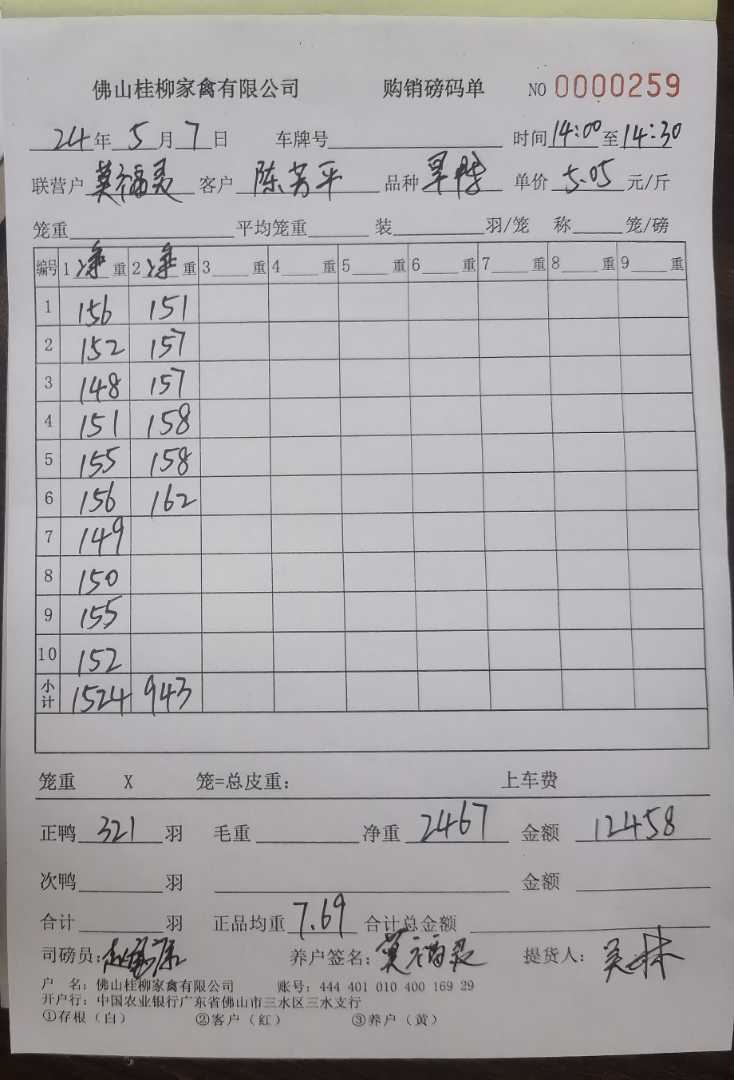 佛山桂柳家禽有限公司 购销磅码单 NO 0000259
24年5月7日 车牌号 时间14:00至14:30
联营户莫福灵 客户陈芳平 品种旱鸭 单价5.05元/斤
笼重 平均笼重 装 羽/笼 称 笼/磅
编号 1净重 2净重 3 重 4 重 5 重 6 重 7 重 8 重 9 重
1 156 151
2 152 157
3 148 157
4 151 158
5 155 158
6 156 162
7 149
8 150
9 155
10 152
小计 1524 943
笼重 X 笼=总皮重: 上车费
正鸭321羽 毛重 净重2467 金额12458
次鸭 羽 金额
合计 羽 正品均重7.69 合计总金额
司磅员: 养户签名:莫福灵 提货人:
户 名: 佛山桂柳家禽有限公司 账号: 444 401 010 400 169 29
开户行: 中国农业银行广东省佛山市三水区三水支行
①存根(白) ②客户(红) ③养户(黄)